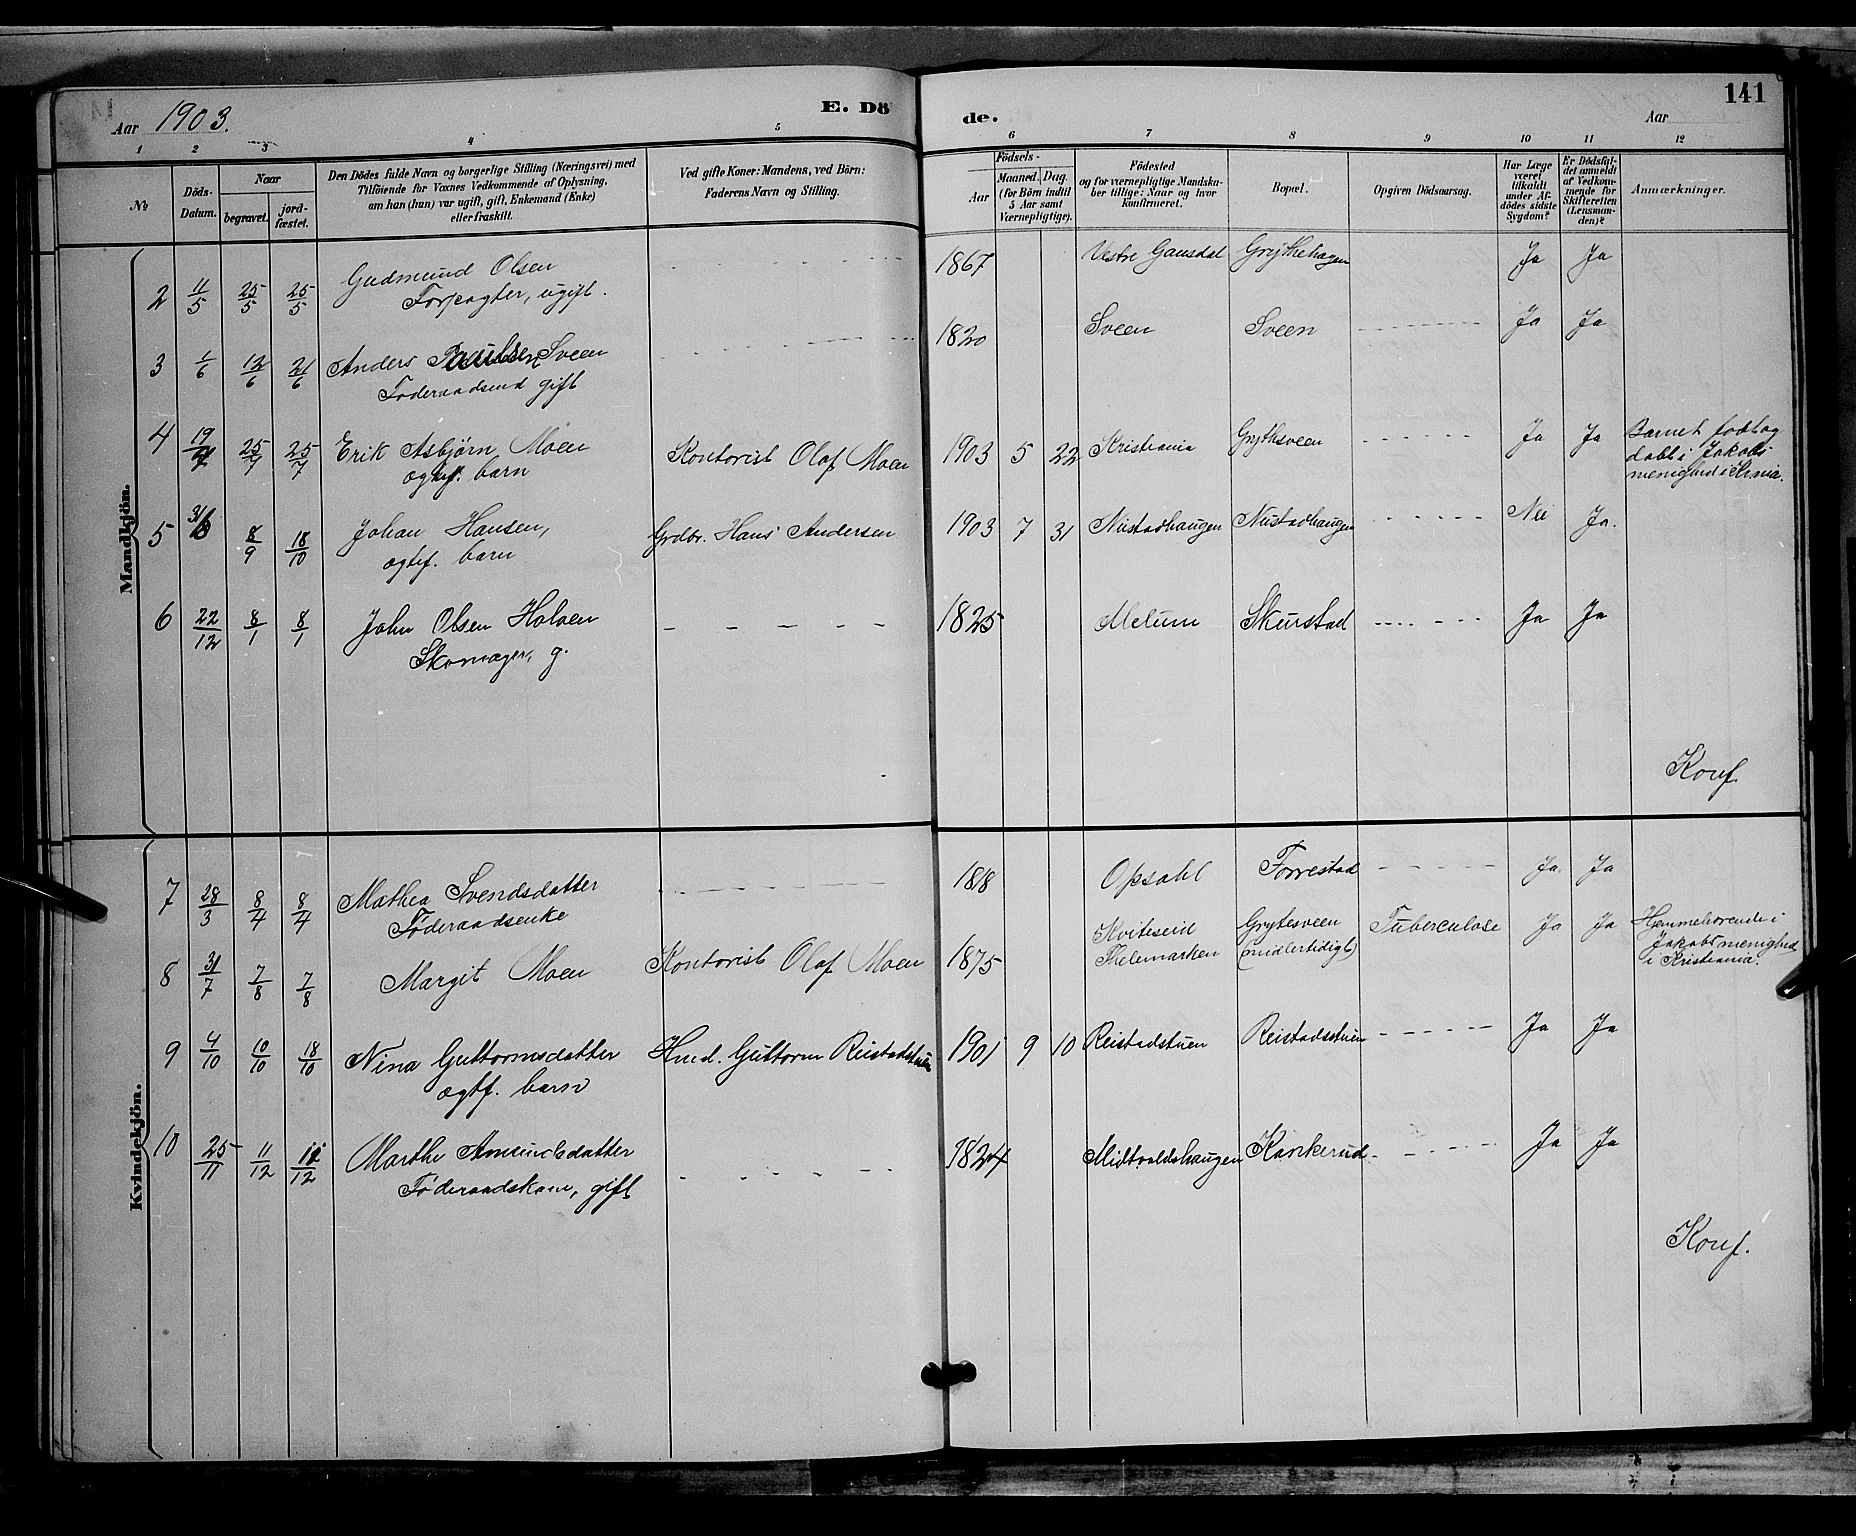 Aar 1903. E. Dö de. Aar 141
1 2 3 4 5 6 7 8 9 10 11 12
№
Döds-Datum.
Naar
begravet. jord-fæstet.
Den Dödes fulde Navn og borgerlige Stilling (Næringsvei) med
Tilföiende for Voxnes Vedkommende af Oplysning,
om han (hun) var ugift, gift, Enkemand (Enke)
eller fraskilt.
Ved gifte Koner: Mandens, ved Börn:
Faderens Navn og Stilling.
Födsels-
Aar
Maaned. Dag.
(for Börn indtil
5 Aar samt
Værnepligtige).
Födested
og for værnepligtige Mandska-
ber tillige: Naar og hvor
konfirmeret.
Bopæl.
Opgiven Dödsaarsag.
Har Læge
været
tilkaldt
under Af-
dödes sidste
Sygdom?
Er Dödsfal-
det anmeldt
af Vedkom-
mende for
Skifteretten
(Lensman-
den)?
Anmærkninger.
Mandkjön.
2 11/5 25/5 25/5 Gudmund Olsen - - - 1867 Vestre Gausdal Grythehagen Ja Ja
Forpagter, ugift.
3 1/6 12/6 21/6 Anders Paulsen Sveen - - - 1820 Sveen Sveen - - - Ja Ja
Föderaadsmd gift
4 19/7 25/7 25/7 Erik Asbjørn Moen Kontorist Olaf Moen 1903 5 22 Kristiania Grythsveen - - - Ja Ja Barnet födt og
ægtef. barn döbt i Jakobs
menighed i Krnia.
5 31/8 8/9 18/10 Johan Hansen, Grdbr. Hans Andersen 1903 7 31 Niistadhaugen Niistadhaugen - - - Nei Ja.
ægtef. barn
6 22/12 8/1 8/1 John Olsen Holoen - - - 1825 Melum Skurstad - - - Ja Ja
Skomager, g.
Konf.
Kvindekjön.
7 28/3 8/4 8/4 Mathea Svendsdatter - - - 1818 Opsahl Forrestad - - - Ja Ja
Föderaadsenke
8 31/7 7/8 7/8 Margit Moen Kontorist Olaf Moen 1875 Kviteseid Grytesveen Tuberculose Ja Ja Hjemmehörende i
Thelemarken (midlertidigt) Jakobs menighed
i Kristiania.
9 4/10 10/10 18/10 Nina Guttormsdatter Hmd. Guttorm Reistadstuen 1901 9 10 Reistadstuen Reistadsstuen - - - Ja Ja
ægtf. barn
10 25/11 11/12 11/12 Marthe Amundsdatter - - - 1824 Midtvoldshaugen Kankerud - - - Ja Ja
Föderaadskone, gift
Konf.